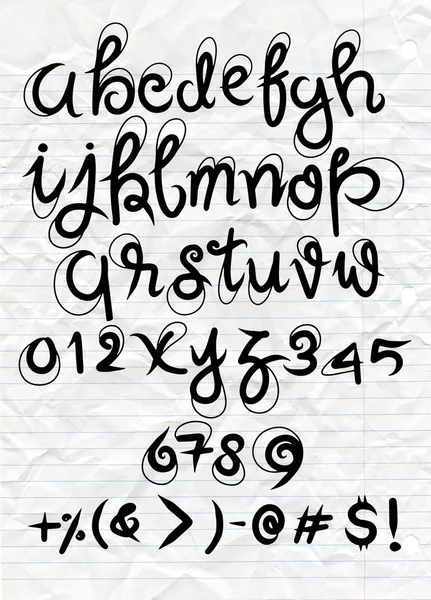 abcdefgh
ijklmnop
qrstuvw
012xyz345
6789
+%(&>)-@#$!